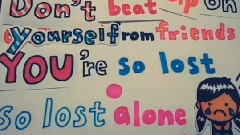 Don't beat up on
yourself from friends
You're so lost
so lost alone